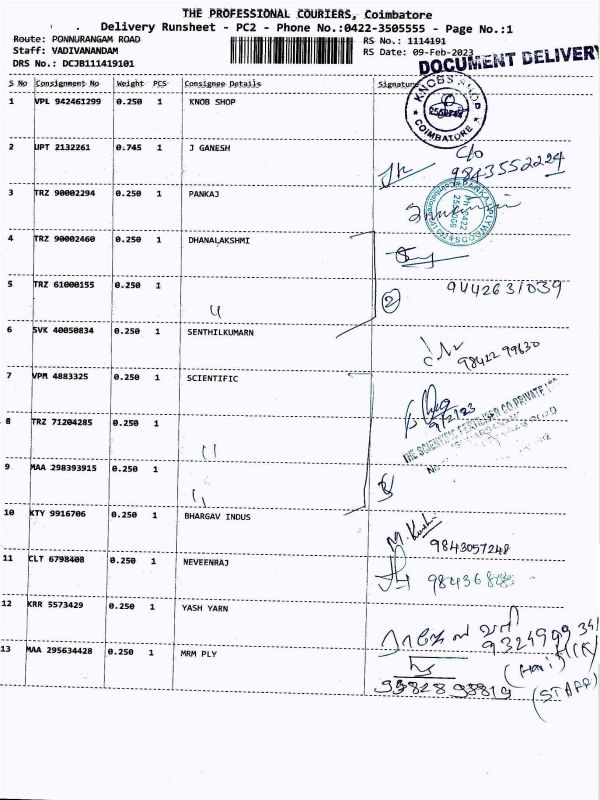 THE PROFESSIONAL COURIERS, Coimbatore
Delivery Runsheet - PC2 - Phone No.:0422-3505555 - Page No.:1
Route: PONNURANGAM ROAD
RS No.: 1114191
Staff: VADIVANANDAM
RS Date: 09-Feb-2023
DRS No.: DCJB111419101
DOCUMENT DELIVERY
S No Consignment No Weight PCS Consignee Details Signature
KNOBS SHOP
COIMBATORE
1 VPL 942461299 0.250 1 KNOB SHOP
2 UPT 2132261 0.745 1 J GANESH
C/o
9843552224
3 TRZ 90002294 0.250 1 PANKAJ
Ph 0422
4 TRZ 90002460 0.250 1 DHANALAKSHMI
5 TRZ 61000155 0.250 1 "
9442631039
2
6 SVK 40050834 0.250 1 SENTHILKUMARN
98422 99630
7 VPM 4883325 0.250 1 SCIENTIFIC
9/2/23
THE SCIENTIFIC FERTILISER CO PRIVATE LTD
8 TRZ 71204285 0.250 1 "
9 MAA 298393915 0.250 1 "
10 KTY 9916706 0.250 1 BHARGAV INDUS
9843057248
11 CLT 6798408 0.250 1 NEVEENRAJ
12 KRR 5573429 0.250 1 YASH YARN
13 MAA 295634428 0.250 1 MRM PLY
(STAFF)